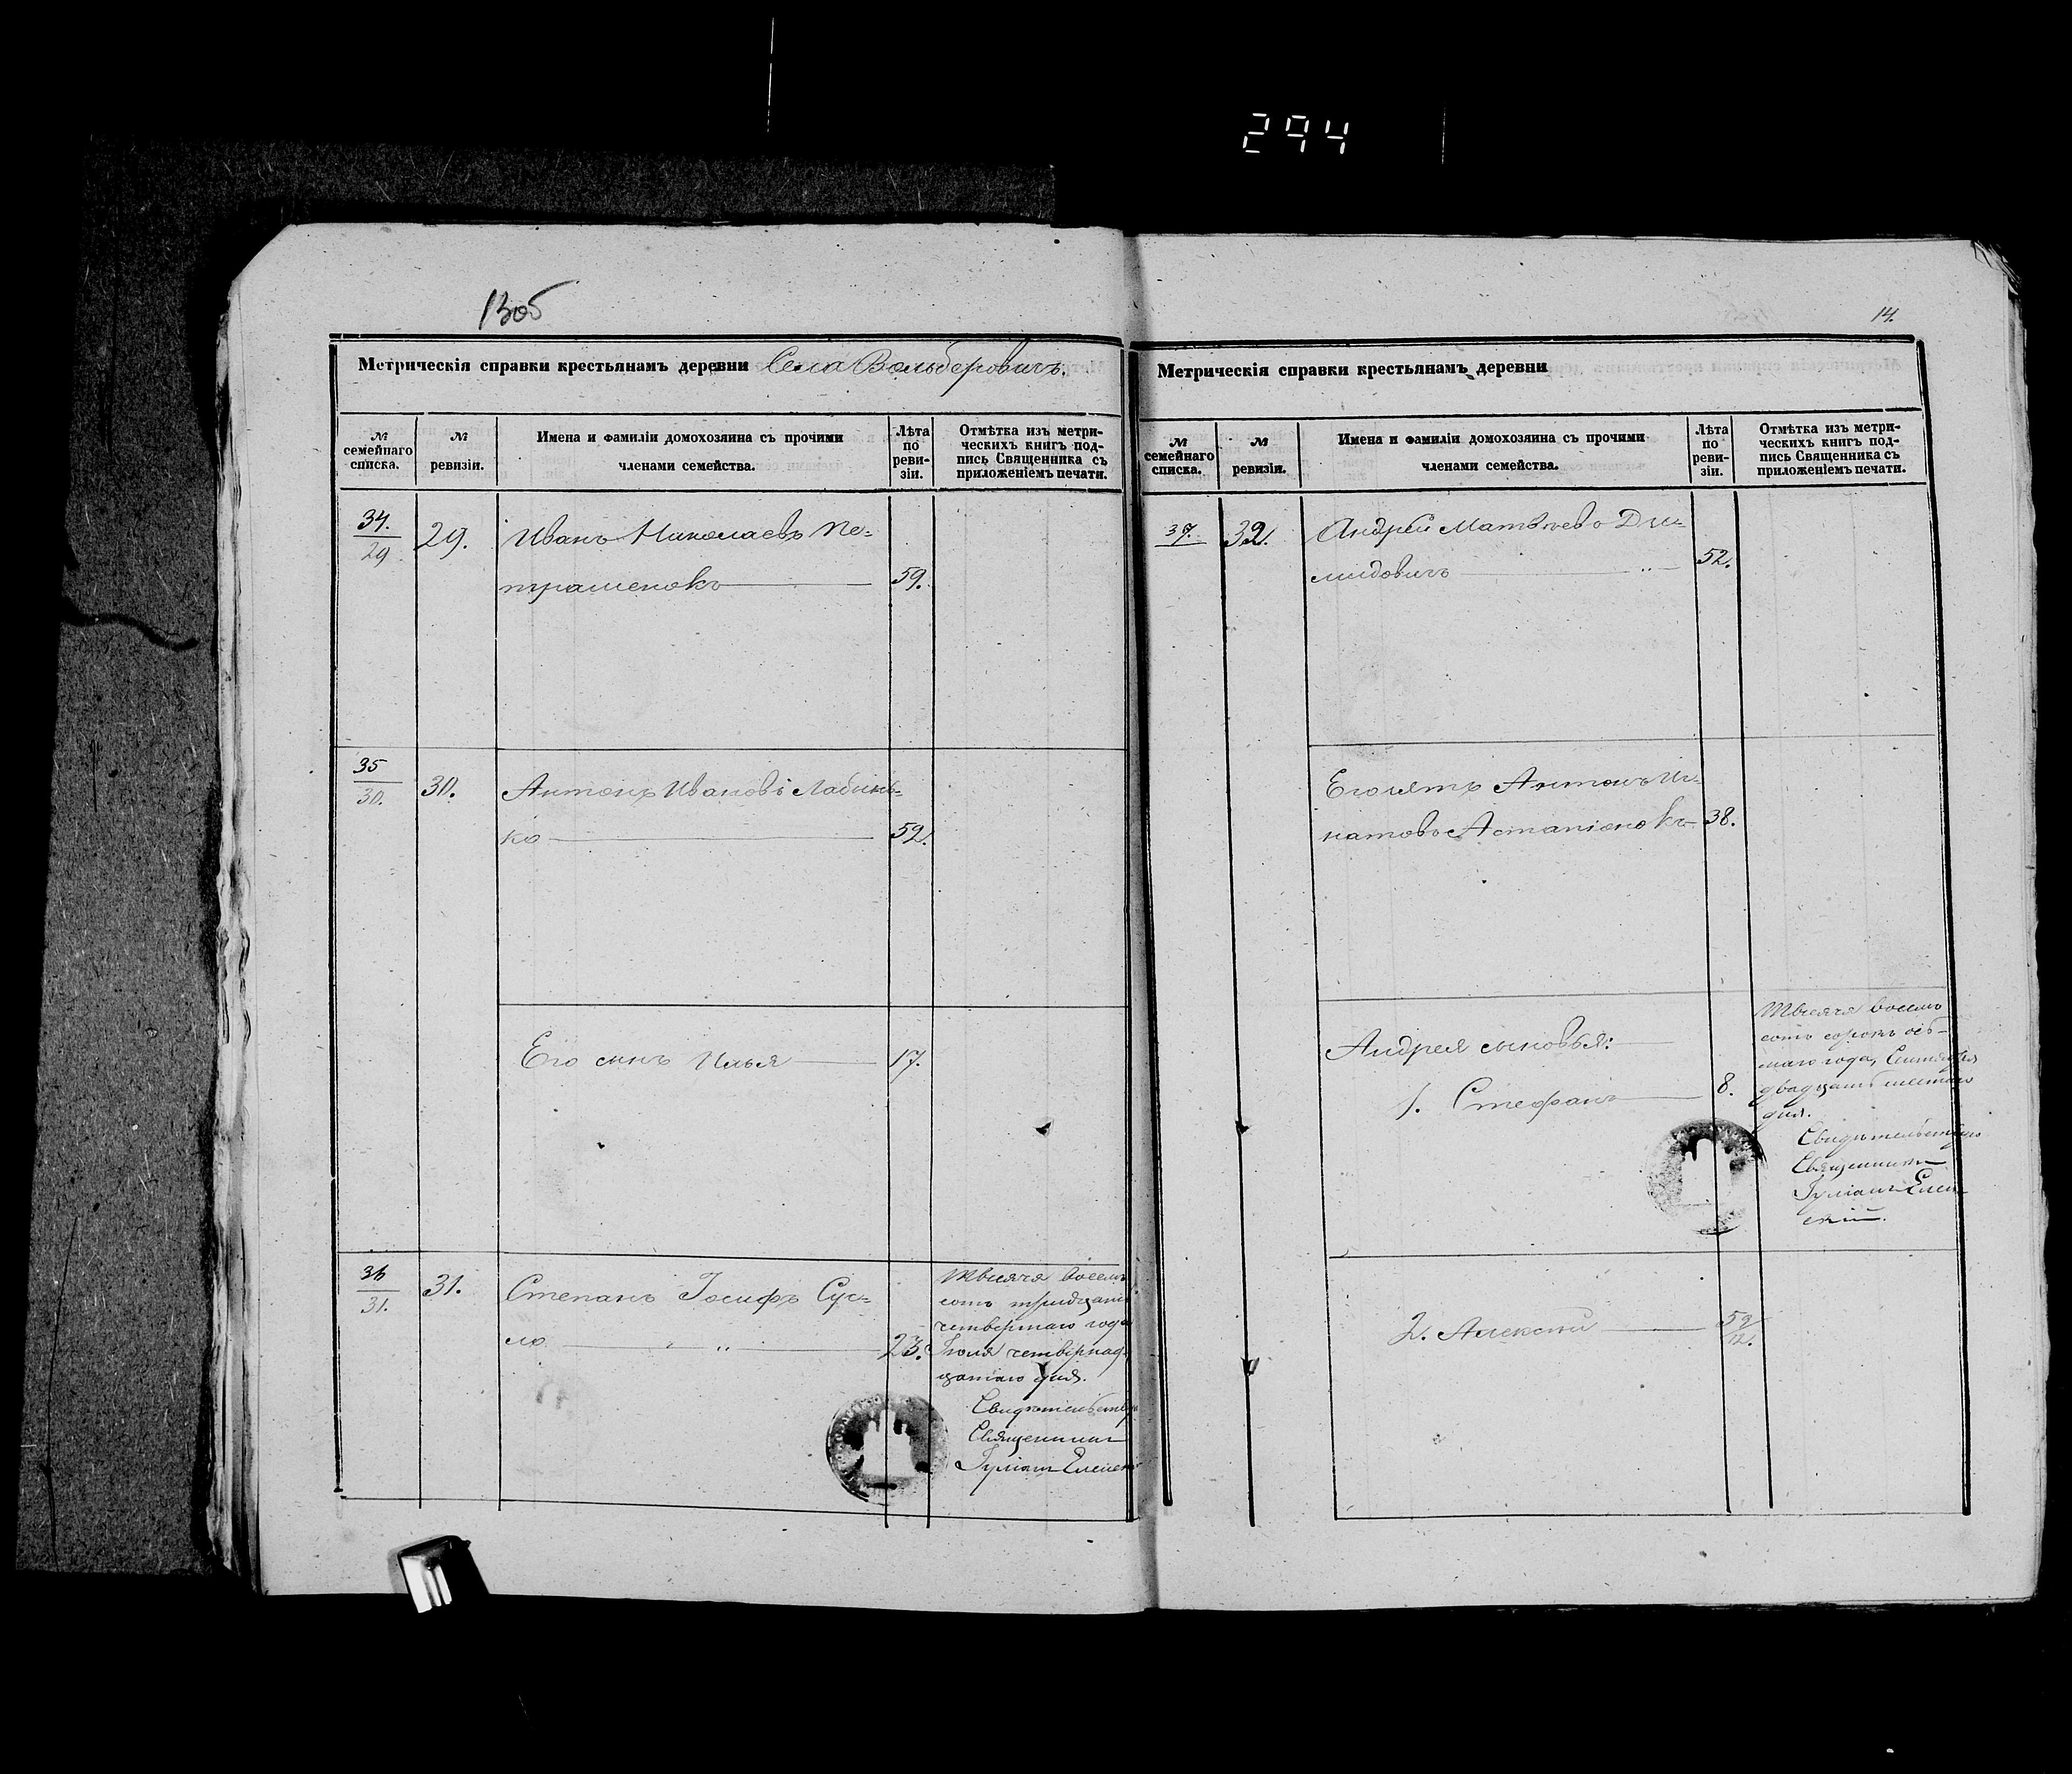 294
13об
Метрическія справки крестьянамъ деревни Села Вольберовичъ.
№ семейнаго списка.
№ ревизіи.
Имена и фамиліи домохозяина съ прочими
членами семейства.
Лѣта по реви-зіи.
Отмѣтка изъ метри-
ческихъ книгъ под-
пись Священника съ
приложеніемъ печати.
34. 29. Иванъ Николаевъ Пе=
29
трашенокъ 59.
35 30. Антонъ Ивановъ Лабинь=
30.
ко 52.
Его сынъ Илья 17.
36 31. Степанъ Іосифъ Сус=
31.
ло 23.
Тысяча восемь
сотъ тридцать
четвертаго года
Іюля четвернад-
цатаго дня.
Свидѣтельству
Священникъ
Іуліанъ
14.
Метрическія справки крестьянамъ деревни
№ семейнаго списка.
№ ревизіи.
Имена и фамиліи домохозяина съ прочими
членами семейства.
Лѣта по реви-зіи.
Отмѣтка изъ метри-
ческихъ книгъ под-
пись Священника съ
приложеніемъ печати.
37. 32. Андрей Матвѣевъ Ди=
мидовичъ 52.
Его зять Антонъ Иг-
натовъ Астапіонокъ 38.
Андрея сыновья:
1. Стефанъ 8.
Тысяча восемь
сотъ сорокъ ось-
маго года, Сентября
двадцать шестаго
дня.
Свидѣтельствую
Священникъ
Іуліанъ
скій.
2. Алексѣй
12.